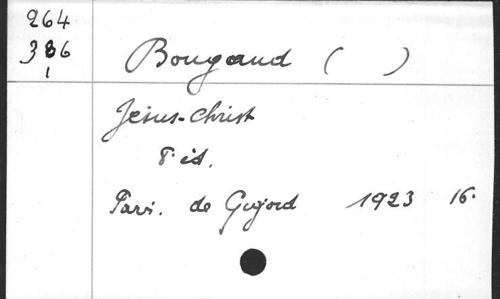 264
386
1
Bougaud ( )
Jésus-Christ
8° éd.
Paris. de Gigord 1923 16°